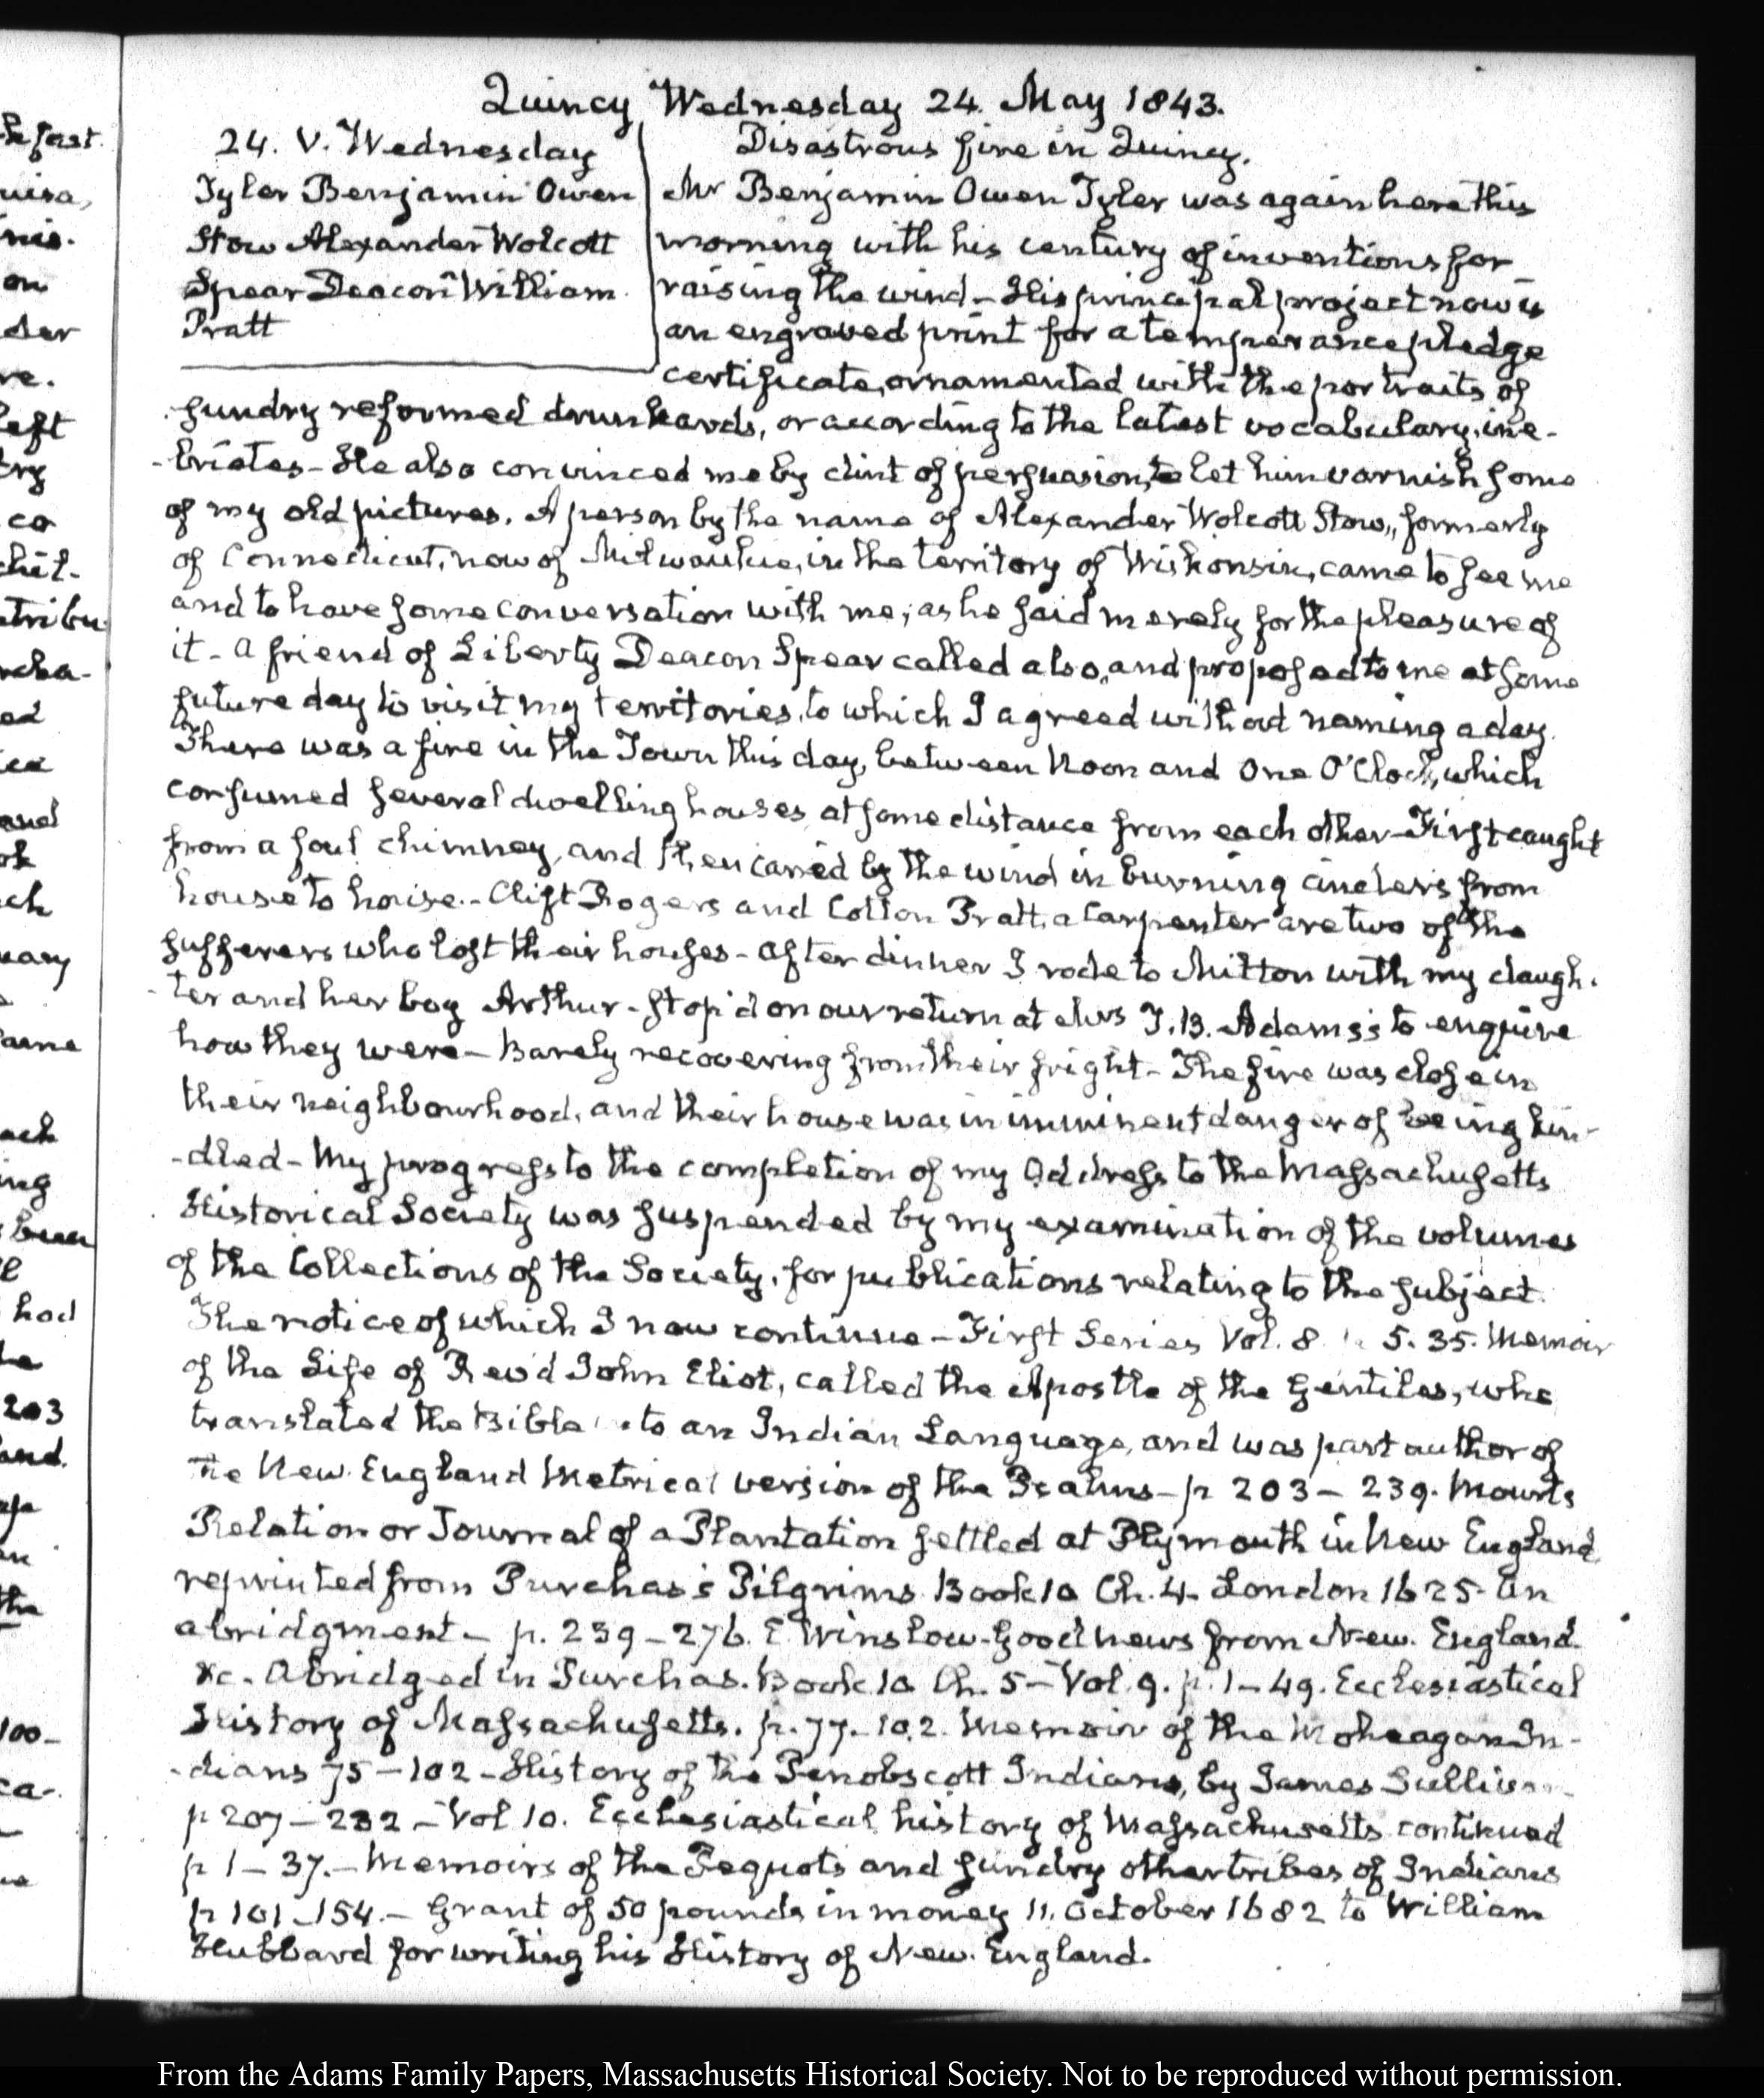 Quincy Wednesday 24. May 1843.
24. V. Wednesday
Tyler Benjamin Owen
Stow Alexander Wolcott
Spear Deacon William
Pratt
Disastrous fire in Quincy.
Mr Benjamin Owen Tyler was again here this
morning with his century of inventions for
raising the wind - His principal project now is
an engraved print for a temperance pledge
certificate, ornamented with the portraits of
sundry reformed drunkards, or according to the latest vocabulary, ine-
-briates - He also convinced me by dint of persuasion, to let him varnish some
of my old pictures. A person by the name of Alexander Wolcott Stow, formerly
of Connecticut, now of Milwaukie, in the territory of Wiskonsin, came to see me
and to have some conversation with me; as he said merely for the pleasure of
it - a friend of Liberty Deacon Spear called also, and proposed to me at some
future day to visit my territories, to which I agreed without naming a day.
There was a fire in the Town this day, between Noon and One O'Clock, which
consumed several dwelling houses, at some distance from each other - First caught
from a foul chimney, and then carried by the wind in burning cinders from
house to house. - Clift Rogers and Cotton Pratt, a Carpenter are two of the
sufferers who lost their houses - After dinner I rode to Milton with my daugh-
-ter and her boy Arthur - stop'd on our return at Mrs T. B. Adams's to enquire
how they were - Barely recovering from their fright - The fire was close in
their neighbourhood, and their house was in imminent danger of being kin-
-dled - My progress to the completion of my Address to the Massachusetts
Historical Society was suspended by my examination of the volumes
of the Collections of the Society, for publications relating to the subject.
The notice of which I now continue - First Series Vol. 8. 5. 35. Memoir
of the Life of Rev'd John Eliot, called the Apostle of the Gentiles, who
translated the Bible to an Indian Language, and was part author of
the New England Metrical version of the Psalms - p 203 - 239. Mourt's
Relation or Journal of a Plantation settled at Plymouth in New England
reprinted from Purchas's Pilgrims Book 10 Ch. 4. London 1625. An
abridgment - p. 239 - 276. E. Winslow. Good news from New. England
&c. Abridged in Purchas. Book 10 Ch. 5 - Vol. 9. p. 1 - 49. Ecclesiastical
History of Massachusetts. p. 77 - 102. Memoir of the Moheagan In-
-dians 75 - 102 - History of the Penobscott Indians, by James Sullivan
p 207 - 232 - Vol 10. Ecclesiastical history of Massachusetts continued
p 1 - 37. - Memoirs of the Pequots and sundry other tribes of Indians
p 101 - 154. - Grant of 50 pounds in money 11. October 1682 to William
Hubbard for writing his History of New. England.
From the Adams Family Papers, Massachusetts Historical Society. Not to be reproduced without permission.